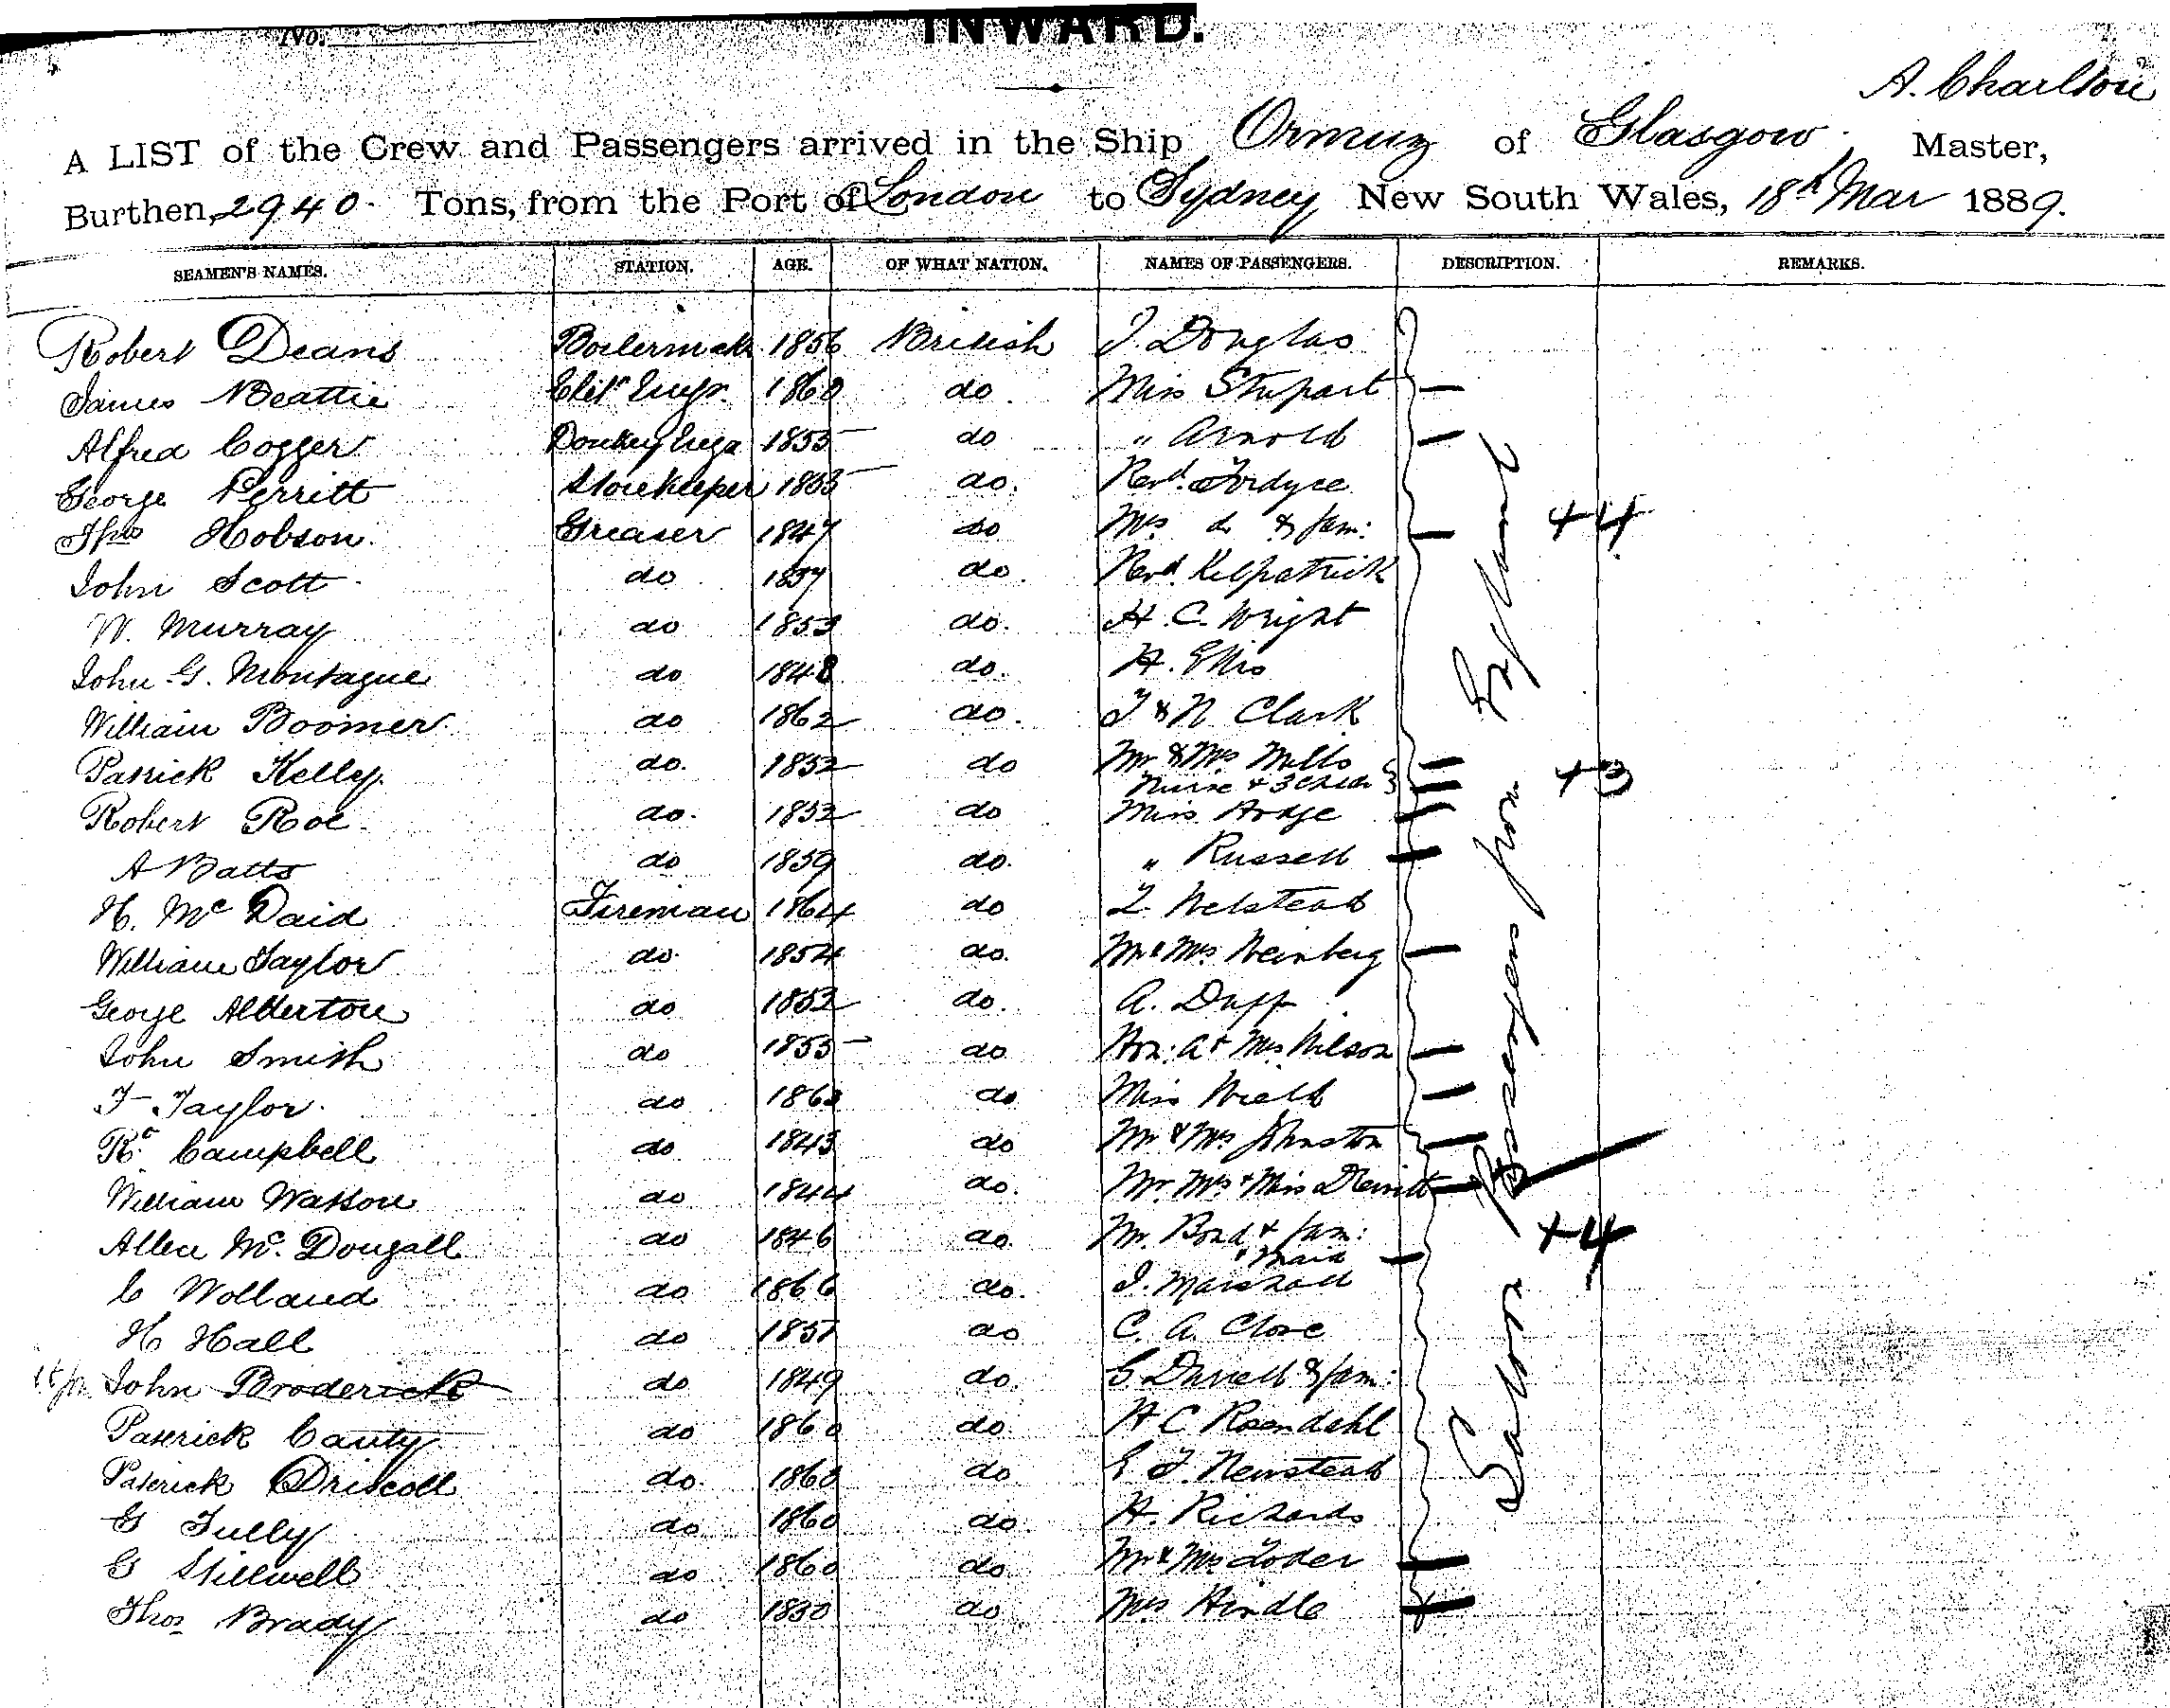 INWARD.
No.
A. Charlton
A LIST of the Crew and Passengers arrived in the Ship Ormuz of Glasgow, Master,
Burthen, 2940 Tons, from the Port of London to Sydney New South Wales, 18th Mar 1889.
SEAMEN'S NAMES. STATION. AGE. OF WHAT NATION. NAMES OF PASSENGERS. DESCRIPTION. REMARKS.
Robert Deans Boilermak 1856 British J. Douglas
James Beattie 1860 do Miss Stupart
Alfred Cogger Donkey 1855 do " Arnold
George Perritt Storekeeper 1855 do. Revd. Fordyce
Thos Hobson Greaser 1847 do Mrs do & fam: +4
John Scott do 1857 do. Revd. Kilpatrick
W. Murray do 1853 do. H. C. Wright
John G. Montague do 1848 do. H. Ellis
William Boomer do 1862 do. J & N Clark
Patrick Kelly do. 1852 do Mr & Mrs Mills
Nurse & 3 +3
Robert Roe do. 1852 do Miss Hodge
A Batts do 1859 do. " Russell
H. Mc Daid Fireman 1864 do Welstead
William Taylor do. 1854 do. Mr & Mrs Weinberg
George Alderton do 1852 do. A. Duff
John Smith do 1855 do Hon: A & Mrs Wilson
F Taylor do 1860 do Miss Wield
R. Campbell do 1845 do Mr & Mrs Johnston
William Watson do 1844 do. Mr Mrs & Miss
Allen Mc. Dougall do 1846 do. Mr. Bond & fam:
" Maid +4
C Wolland do 1866 do. J. Marshall
H Hall do 1857 do C. A. Close
John Broderick do 1849 do. G Darrell & fam:
Patrick Canty do 1860 do. H C Rosendahl
Patrick Driscoll do. 1860 do E J. Newstead
G Tully do. 1860 do H. Richards
G Stillwell do 1860 do. Mr & Mrs Loder
Thos Brady do 1850 do Mrs Hindle
Saloon Passengers from England